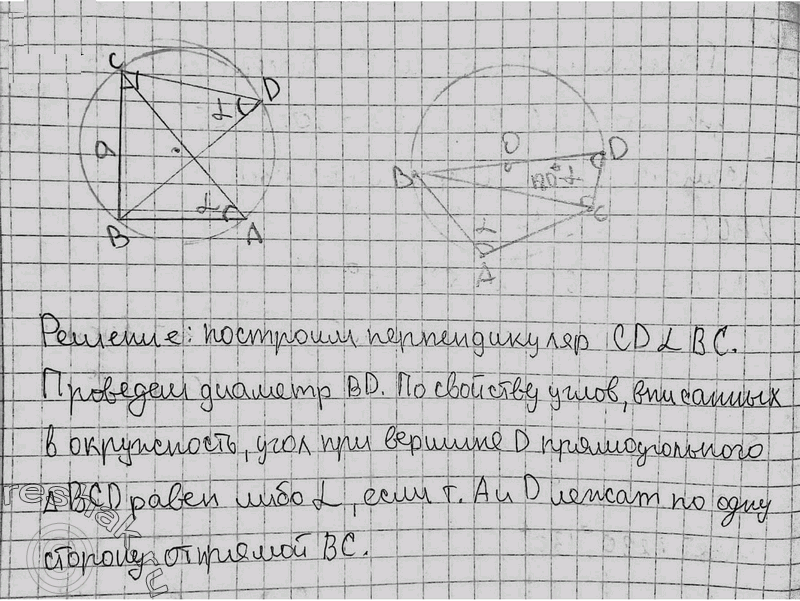 C
D
α
a
α
B
A
O
D
B
180°-α
C
α
A
Решение: построим перпендикуляр CD ⊥ BC.
Проведем диаметр BD. По свойству углов, вписанных
в окружность, угол при вершине D прямоугольного
Δ BCD равен либо α, если т. A и D лежат по одну
сторону от прямой BC.